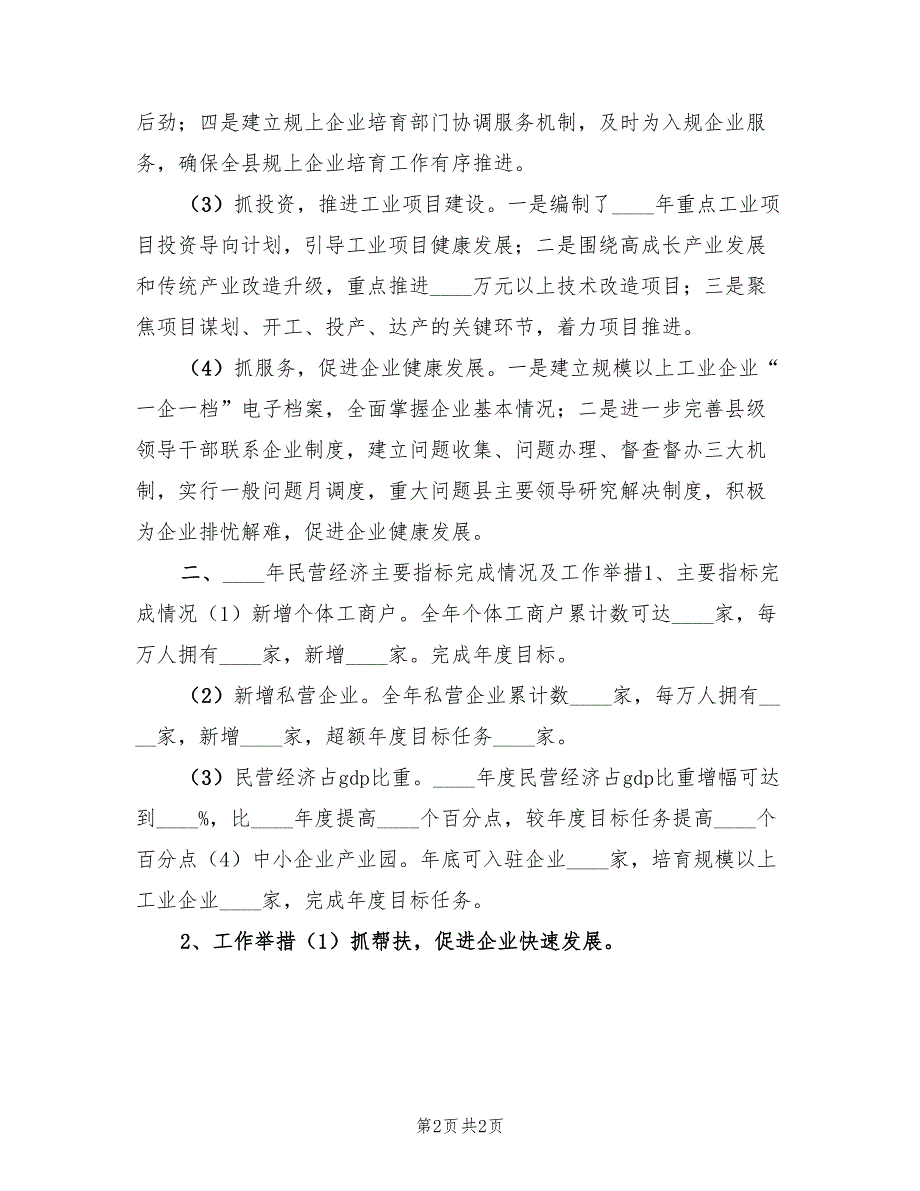 后劲；四是建立规上企业培育部门协调服务机制，及时为入规企业服
务，确保全县规上企业培育工作有序推进。
（3）抓投资，推进工业项目建设。一是编制了____年重点工业项
目投资导向计划，引导工业项目健康发展；二是围绕高成长产业发展
和传统产业改造升级，重点推进____万元以上技术改造项目；三是聚
焦项目谋划、开工、投产、达产的关键环节，着力项目推进。
（4）抓服务，促进企业健康发展。一是建立规模以上工业企业“
一企一档”电子档案，全面掌握企业基本情况；二是进一步完善县级
领导干部联系企业制度，建立问题收集、问题办理、督查督办三大机
制，实行一般问题月调度，重大问题县主要领导研究解决制度，积极
为企业排忧解难，促进企业健康发展。
二、____年民营经济主要指标完成情况及工作举措1、主要指标完
成情况（1）新增个体工商户。全年个体工商户累计数可达____家，每
万人拥有____家，新增____家。完成年度目标。
（2）新增私营企业。全年私营企业累计数____家，每万人拥有__
__家，新增____家，超额年度目标任务____家。
（3）民营经济占gdp比重。____年度民营经济占gdp比重增幅可达
到____%，比____年度提高____个百分点，较年度目标任务提高____个
百分点（4）中小企业产业园。年底可入驻企业____家，培育规模以上
工业企业____家，完成年度目标任务。
2、工作举措（1）抓帮扶，促进企业快速发展。
第2页 共2页